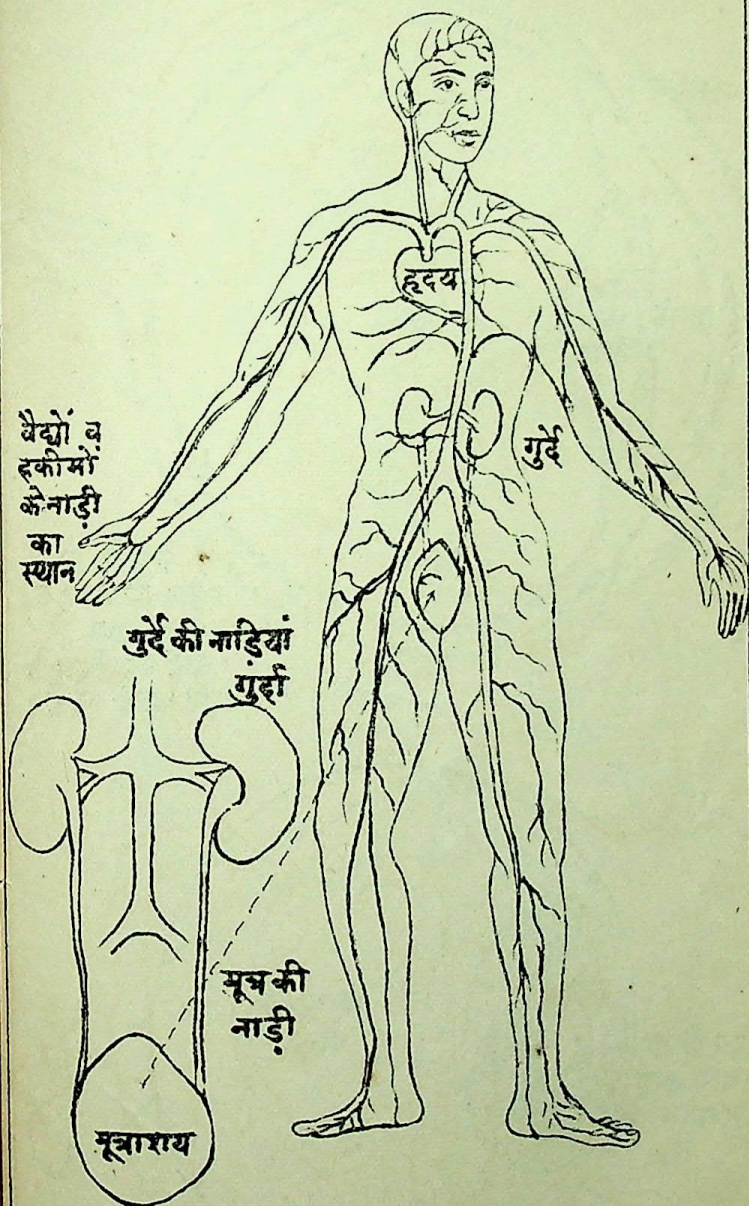 हृदय
वैद्यों व
हकीमों
के नाड़ी
का
स्थान
गुर्दे
गुर्दे की नाड़ियां
गुर्दा
मूत्र की
नाड़ी
मूत्राशय